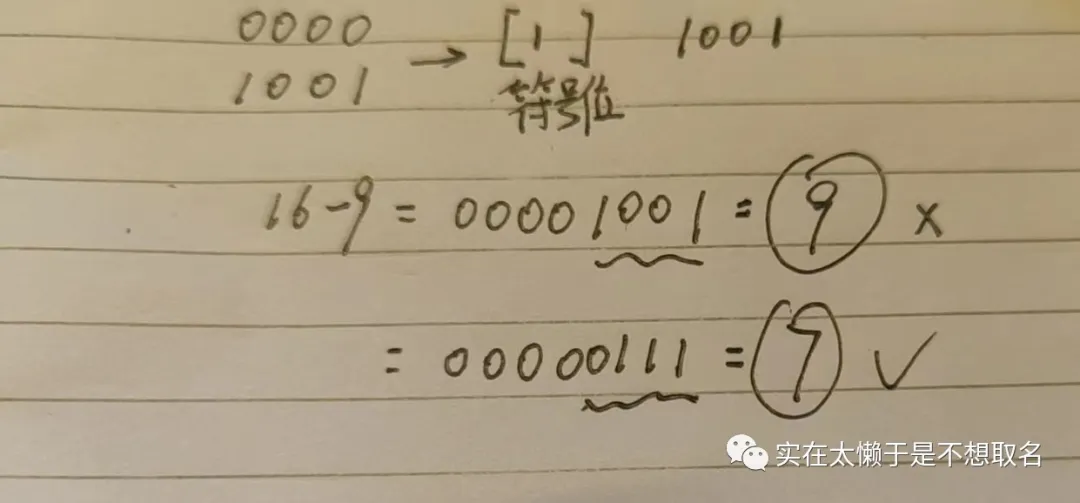 0000
1001 → [1] 1001
符号位
16-9 = 00001001 = 9 ×
= 00000111 = 7 ✓
实在太懒于是不想取名